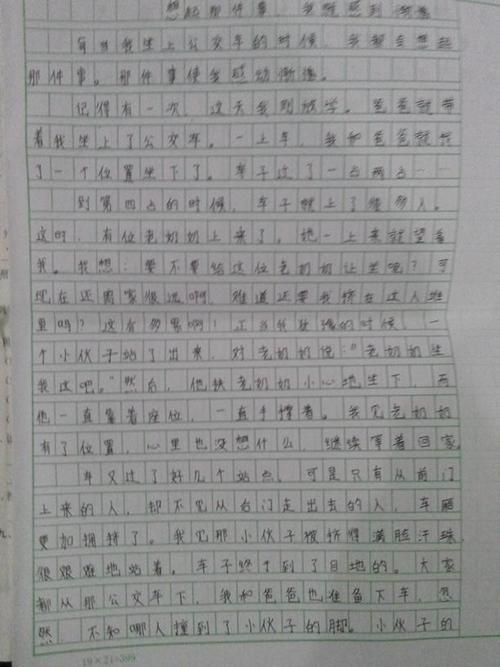 想起那件事，我就感到惭愧
每当我坐上公交车的时候，我都会想起
那件事。那件事使我感动惭愧。
记得有一次，这天我刚放学。爸爸就带
着我坐上了公交车。一上车，我和爸爸就找
了一个位置坐下了。车子过了一占两占……
到第四占的时候，车子就上了很多人。
这时，有位老奶奶上来了。她一上来就望着
我。我想：要不要给这位老奶奶让坐呢？可
现在还离家很远啊，难道还要我挤在这人堆
里吗？这有多累啊！正当我犹豫的时候，一
个小伙子站了出来，对老奶奶说："老奶奶坐
我这吧。"然后，他扶老奶奶小心地坐下，而
他一直靠着座位，一直手撑着。我见老奶奶
有了位置，心里也没想什么，继续等着回家
车又过了好几个站点。可是只有从前门
上来的人，却不见从后门走出去的人，车厢
更加拥挤了。我见那小伙子被挤得满脸汗珠，
很艰难地站着。车子终于到了目地的。大家
都从那公交车下，我和爸爸也准备下车，忽
然，不知哪人撞到了小伙子的脚。小伙子的
19×21=399